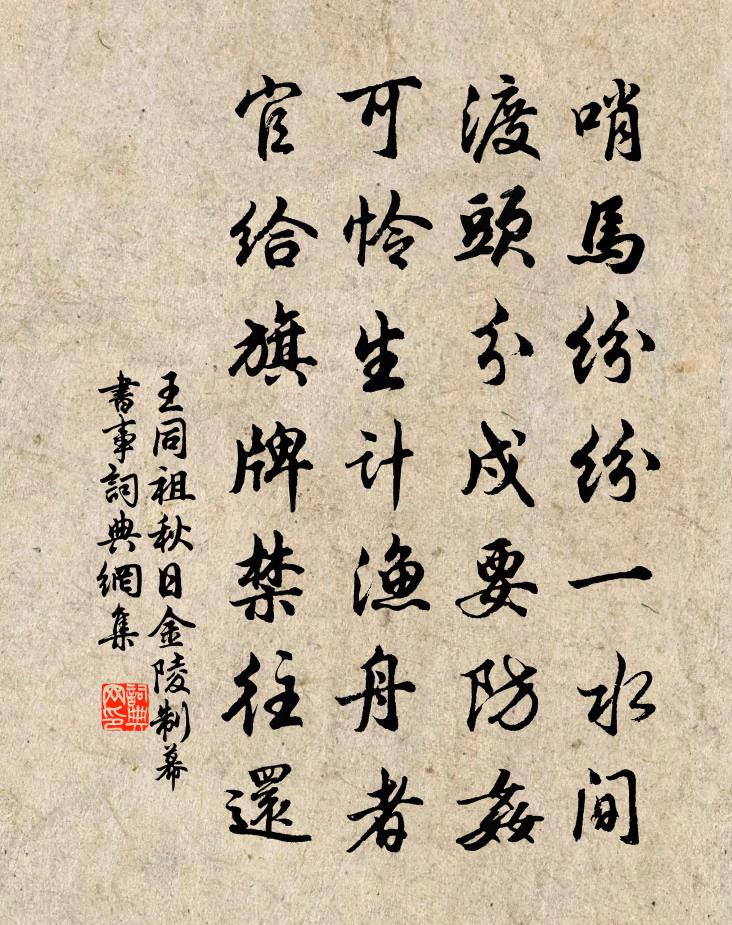 哨馬紛紛一水間
渡頭分戍要防姦
可憐生計漁舟者
官給旗牌禁往還
王同祖秋日金陵制幕
書事詞典網集
詞典
网印